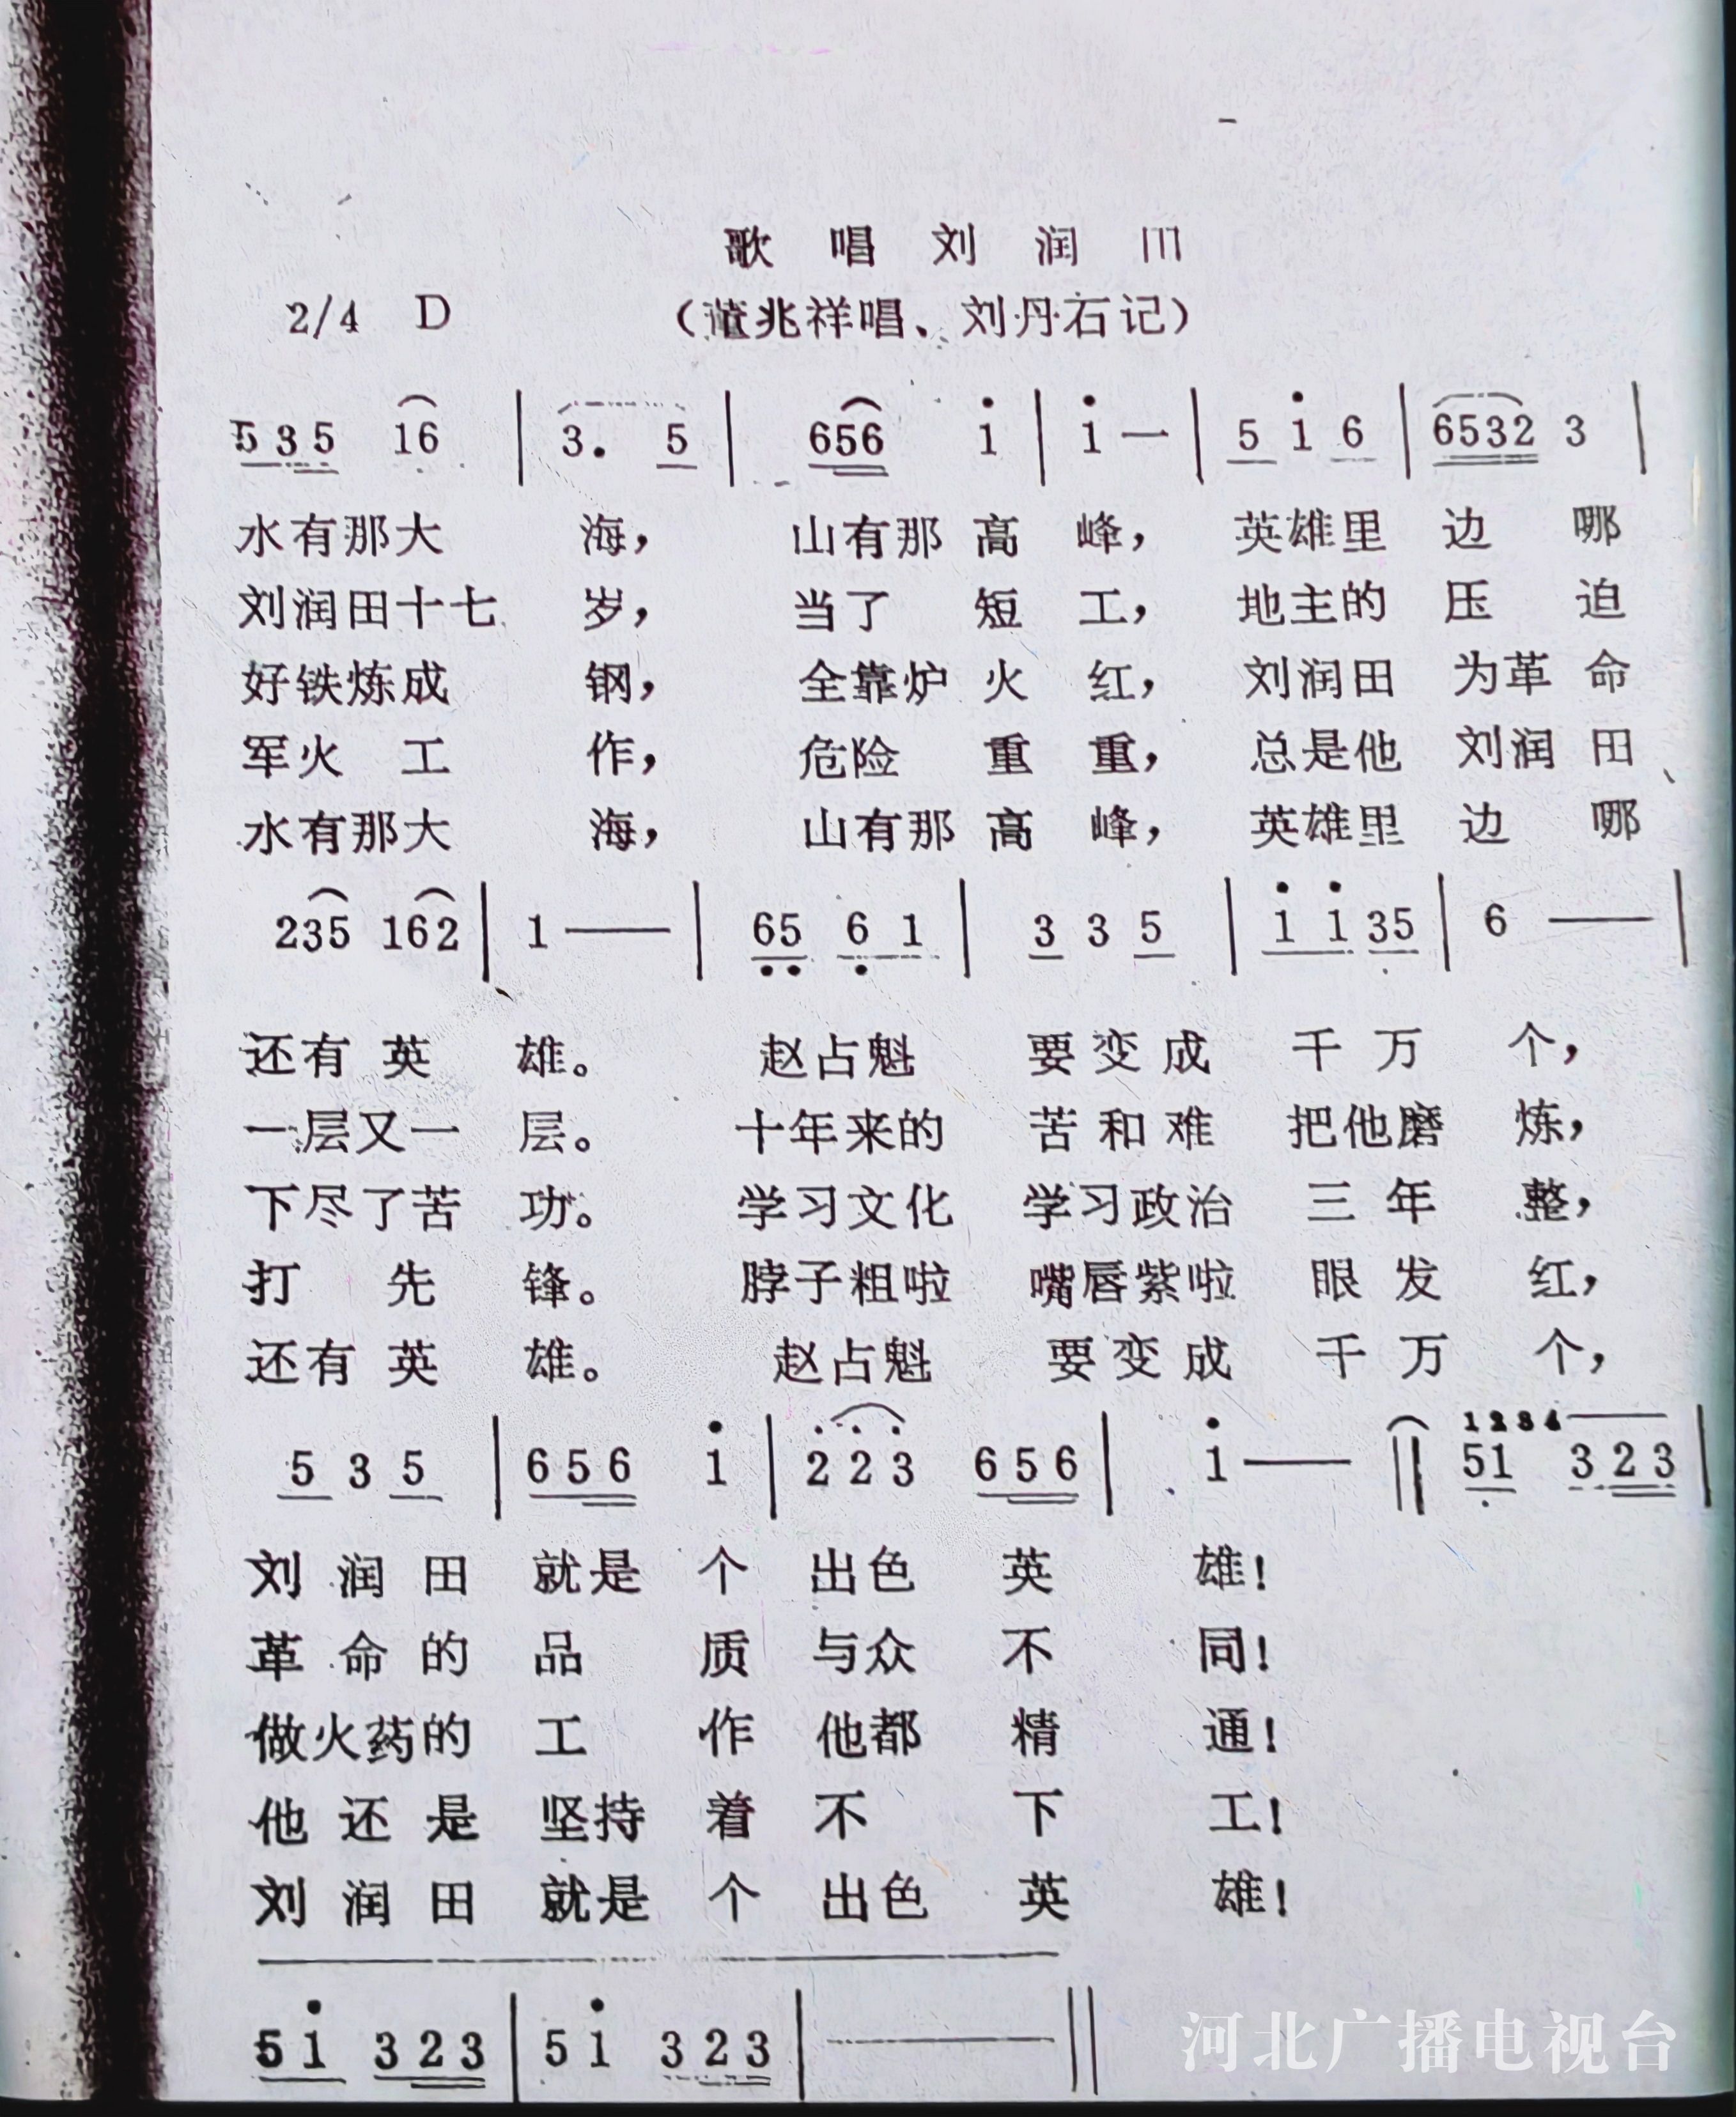 歌唱刘润川
2/4 D （董兆祥唱、刘丹石记）
5 3 5 16 | 3. 5 | 656 i | i — | 5 i 6 | 6532 3 |
水有那大 海， 山有那 高 峰， 英雄里 边 哪
刘润田十七 岁， 当了 短 工， 地主的 压 迫
好铁炼成 钢， 全靠炉 火 红， 刘润田 为革 命
军火 工 作， 危险 重 重， 总是他 刘润 田
水有那大 海， 山有那 高 峰， 英雄里 边 哪
235 162 | 1 — | 65 6 1 | 3 3 5 | i i 35 | 6 — |
还有 英 雄。 赵占魁 要 变 成 千 万 个，
一层又一 层。 十年来的 苦 和 难 把他磨 炼，
下尽了苦 功。 学习文化 学习政治 三 年 整，
打 先 锋。 脖子粗啦 嘴唇紫啦 眼 发 红，
还有 英 雄。 赵占魁 要 变 成 千 万 个，
5 3 5 | 6 5 6 i | 2 2 3 6 5 6 | i — || 1 2 3 4 51 3 2 3 |
刘 润 田 就是 个 出色 英 雄！
革 命 的 品 质 与众 不 同！
做火药的 工 作 他都 精 通！
他 还 是 坚持 着 不 下 工！
刘 润 田 就是 个 出色 英 雄！
5 i 3 2 3 | 5 i 3 2 3 | — ||
河北广播电视台